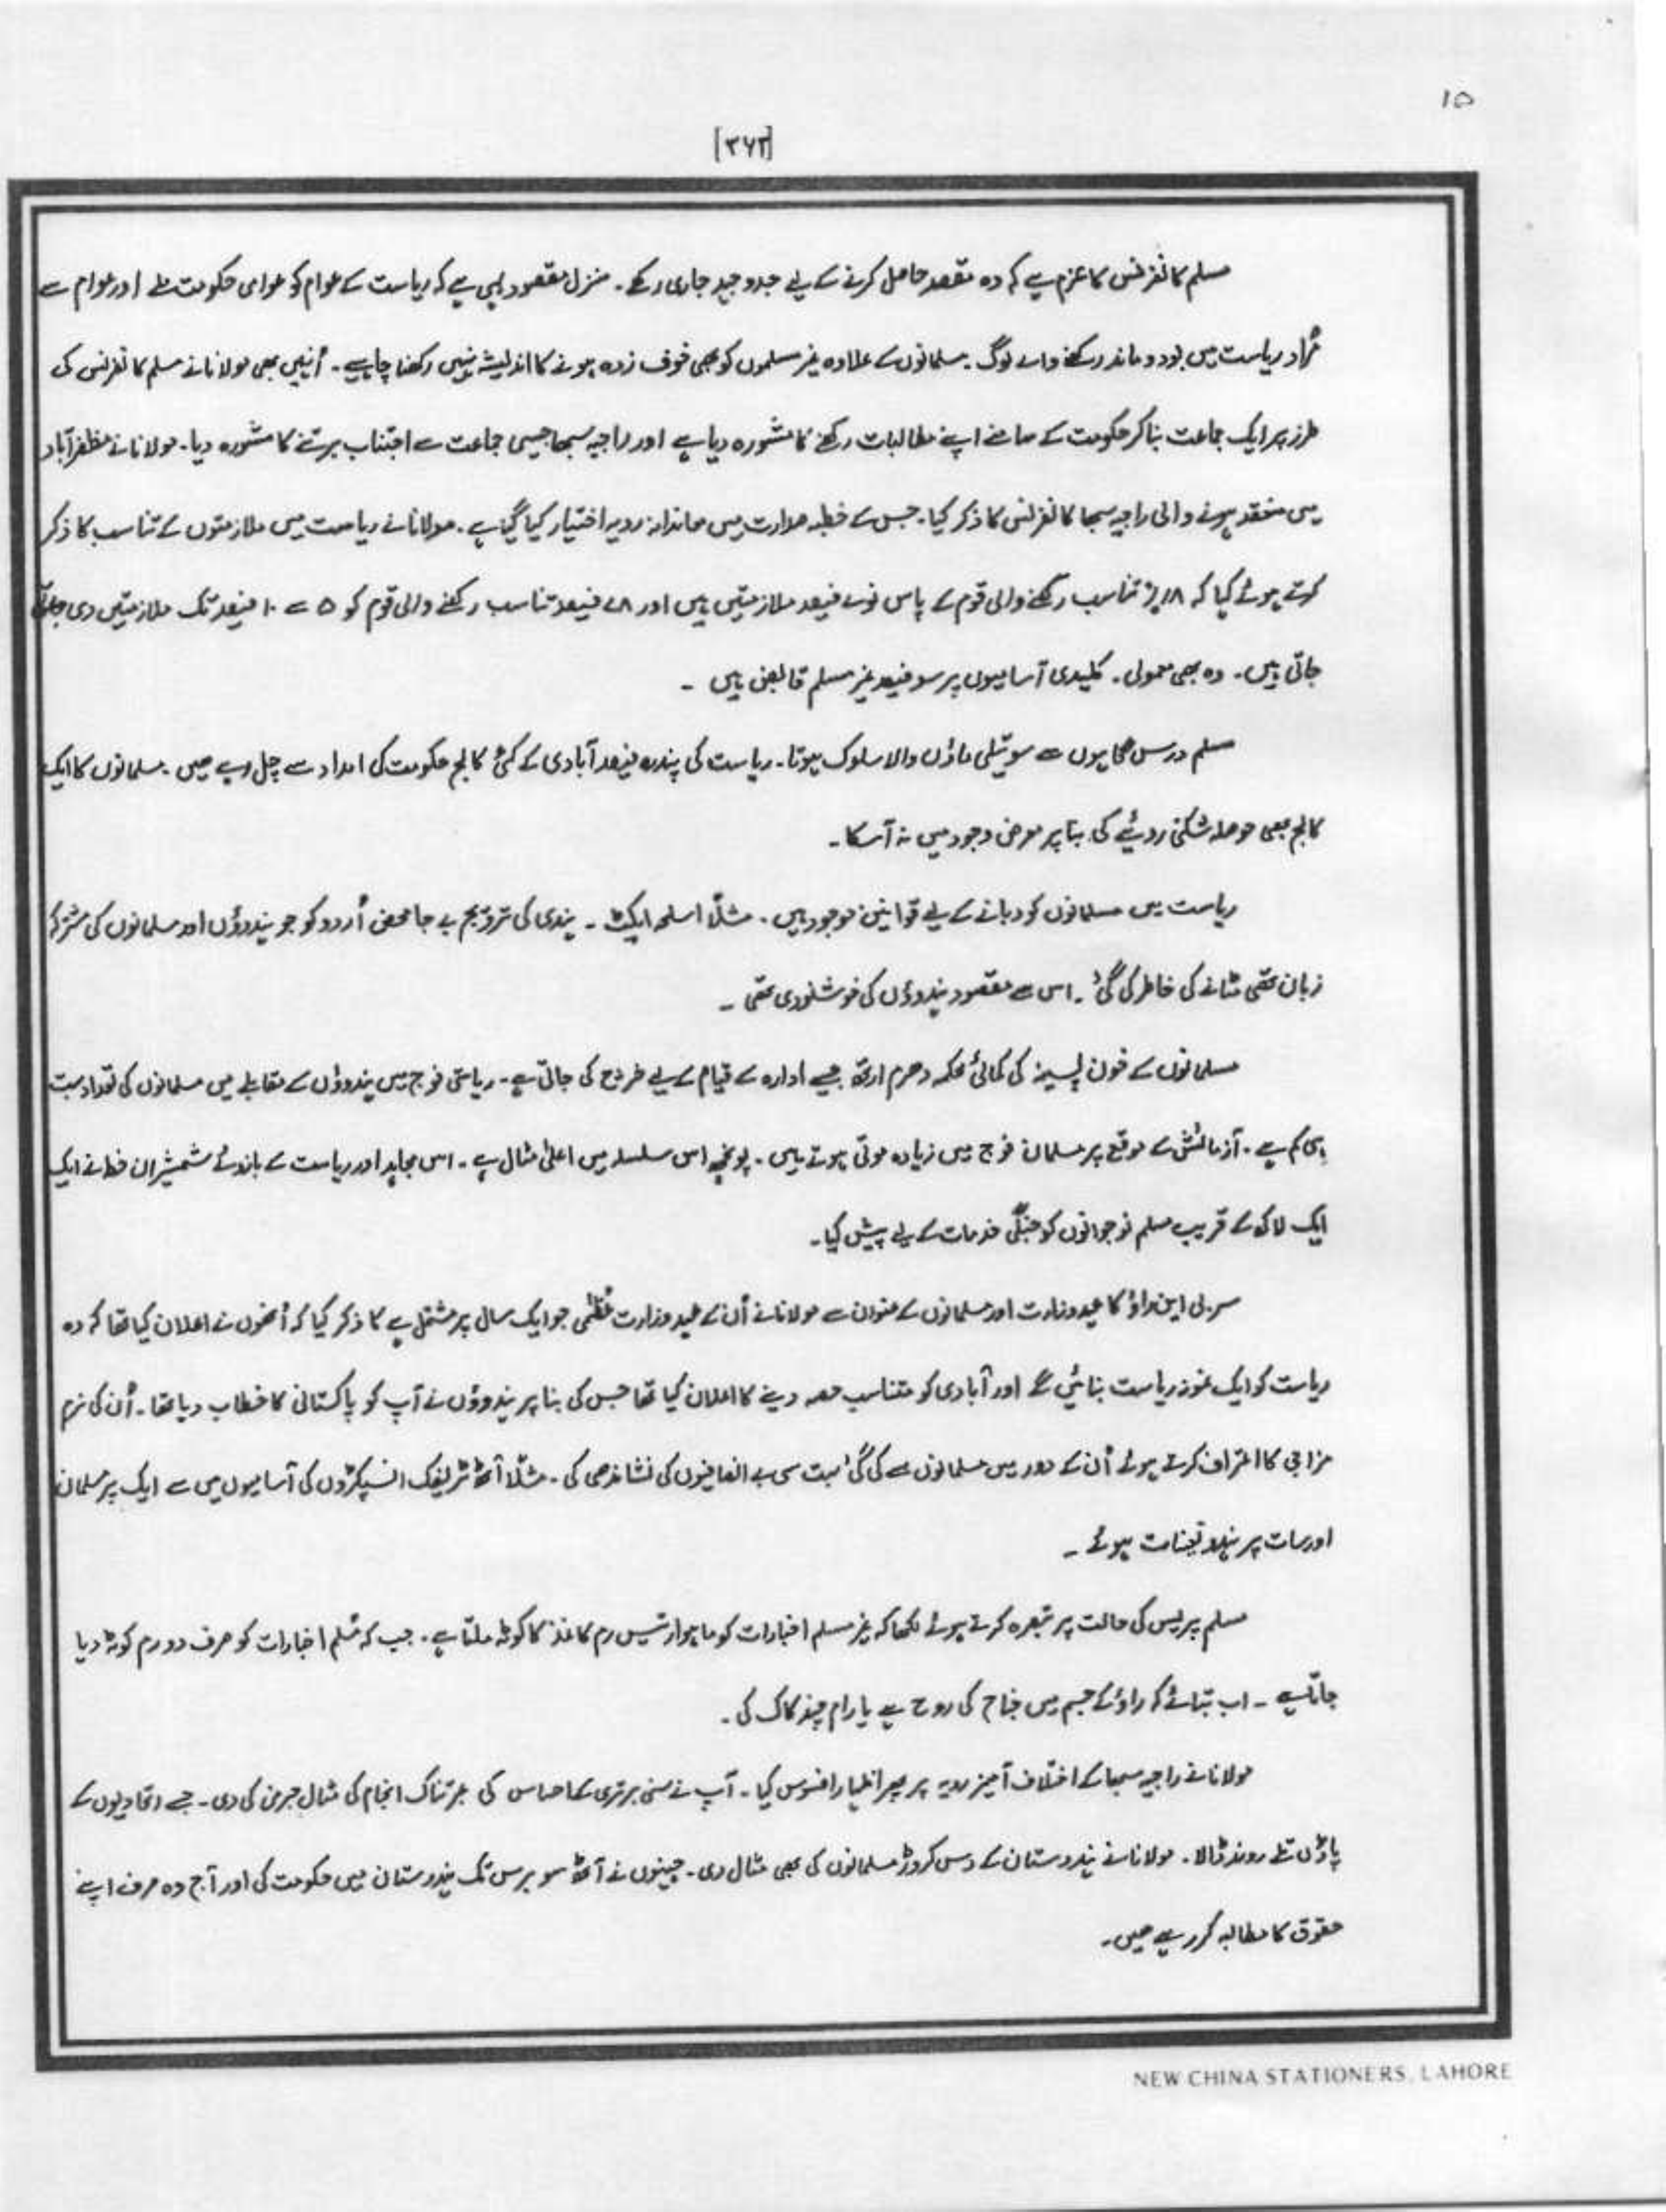 ۱۵
[۳۶۲]
مسلم کانفرنس کا عزم ہے کہ وہ مقصد حاصل کرنے کے لیے جدوجہد جاری رکھے۔ منزل مقصود یہی ہے کہ ریاست کے عوام کو عوامی حکومت ملے اور عوام سے
مُراد ریاست میں بود و ماند رکھنے والے لوگ۔ مسلمانوں کے علاوہ غیر مسلموں کو بھی خوف زدہ ہونے کا اندیشہ نہیں رکھنا چاہیے۔ اُنہیں بھی مولانا نے مسلم کانفرنس کی
طرز پر ایک جماعت بنا کر حکومت کے سامنے اپنے مطالبات رکھنے کا مشورہ دیا ہے اور راجیہ سبھا جیسی جماعت سے اجتناب برتنے کا مشورہ دیا۔ مولانا نے مظفر آباد
میں منعقد ہونے والی راجیہ سبھا کانفرنس کا ذکر کیا۔ جس کے خطبہ صدارت میں معاندانہ رویہ اختیار کیا گیا ہے۔ مولانا نے ریاست میں ملازمتوں کے تناسب کا ذکر
کرتے ہوئے کہا کہ ۱۸٪ تناسب رکھنے والی قوم کے پاس نوے فیصد ملازمتیں ہیں اور ۷۸ فیصد تناسب رکھنے والی قوم کو ۵ سے ۱۰ فیصد تک ملازمتیں دی جاتی
جاتی ہیں۔ وہ بھی معمولی۔ کلیدی آسامیوں پر سو فیصد غیر مسلم قابض ہیں ۔
مسلم درس گاہوں سے سوتیلی ماؤں والا سلوک ہوتا۔ ریاست کی پندرہ فیصد آبادی کے کئی کالج حکومت کی امداد سے چل رہے ہیں۔ مسلمانوں کا ایک
کالج بھی حوصلہ شکنی رویئے کی بنا پر معرض وجود میں نہ آسکا۔
ریاست میں مسلمانوں کو دبانے کے لیے قوانین موجود ہیں۔ مثلاً اسلحہ ایکٹ ۔ ہندی کی ترویج بے جا محض اُردو کو جو ہندوؤں اور مسلمانوں کی مشترکہ
زبان تھی مٹانے کی خاطر کی گئی۔ اس سے مقصود ہندوؤں کی خوشنودی تھی ۔
مسلمانوں کے خون پسینہ کی کمائی محکمہ دھرم ارتھ جیسے ادارہ کے قیام کے لیے خرچ کی جاتی ہے۔ ریاستی فوج میں ہندوؤں کے مقابلے میں مسلمانوں کی تعداد بہت
ہی کم ہے۔ آزمائش کے موقع پر مسلمان فوج میں زیادہ موتی ہوتے ہیں۔ پونچھ اس سلسلہ میں اعلیٰ مثال ہے۔ اس مجاہد اور ریاست کے بازوئے شمشیر ان خطہ نے ایک
ایک لاکھ کے قریب مسلم نوجوانوں کو جنگی خدمات کے لیے پیش کیا۔
سر بی این راؤ کا عہد وزارت اور مسلمانوں کے عنوان سے مولانا نے اُن کے عہد وزارت عُظمٰی جو ایک سال پر مشتمل ہے کا ذکر کیا کہ اُنھوں نے اعلان کیا تھا کہ وہ
ریاست کو ایک نمونہ ریاست بنائیں گے اور آبادی کو متناسب حصہ دینے کا اعلان کیا تھا جس کی بنا پر ہندوؤں نے آپ کو پاکستانی کا خطاب دیا تھا۔ اُن کی نرم
مزاجی کا اعتراف کرتے ہوئے اُن کے دور میں مسلمانوں سے کی گئی بہت سی بے انصافیوں کی نشاندھی کی۔ مثلاً آٹھ ٹریفک انسپکٹروں کی آسامیوں میں سے ایک پر مسلمان
اور سات پر ہندو تعینات ہوئے ۔
مسلم پریس کی حالت پر تبصرہ کرتے ہوئے لکھا کہ غیر مسلم اخبارات کو ماہوار تیس رم کاغذ کا کوٹہ ملتا ہے۔ جب کہ مُسلم اخبارات کو صرف دو رم کوٹہ دیا
جاتا ہے ۔ اب بتائے کہ راؤ کے جسم میں جناح کی روح ہے یا رام چند کاک کی۔
مولانا نے راجیہ سبھا کے اختلاف آمیز رویہ پر پھر اظہار افسوس کیا۔ آپ نے نسلی برتری کے احساس کی عبرتناک انجام کی مثال جرمن کی دی۔ جسے اتحادیوں کے
پاؤں تلے روند ڈالا۔ مولانا نے ہندوستان کے دس کروڑ مسلمانوں کی بھی مثال دی۔ جنہوں نے آٹھ سو برس تک ہندوستان میں حکومت کی اور آج وہ صرف اپنے
حقوق کا مطالبہ کر رہے ہیں۔
NEW CHINA STATIONERS, LAHORE